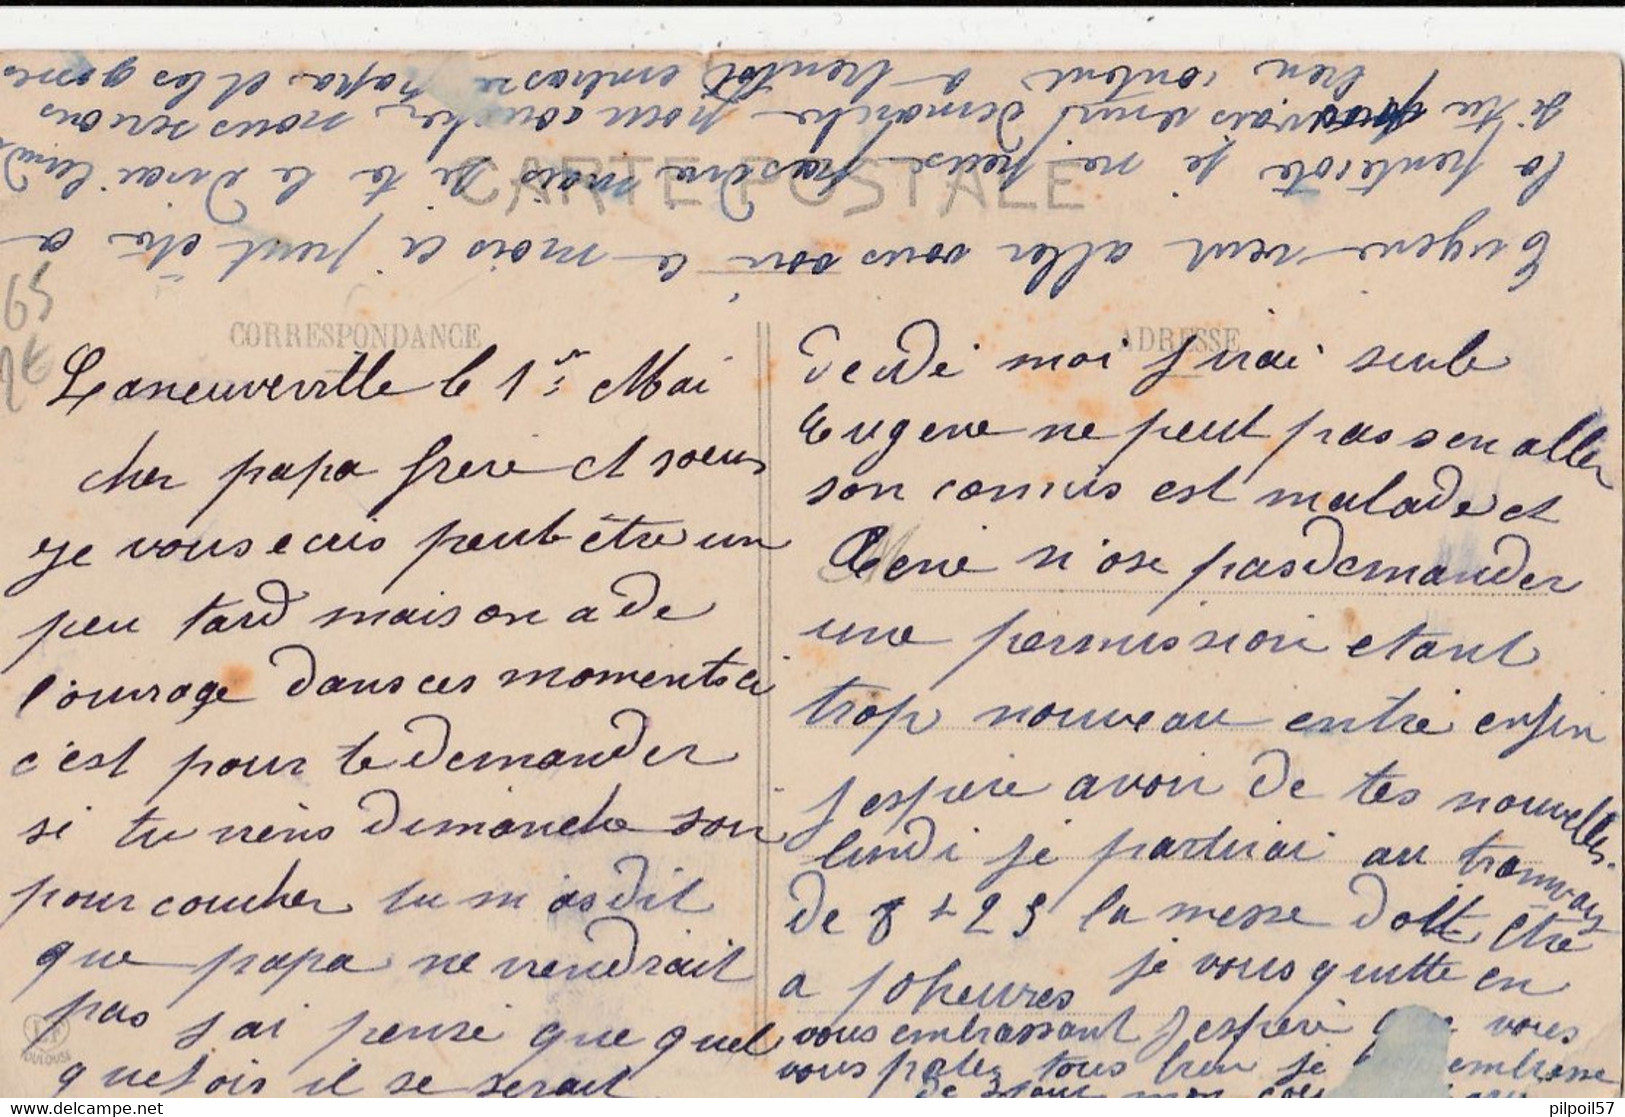 CARTE POSTALE
CORRESPONDANCE
ADRESSE
65
Laneuveville le 1er Mai
cher papa frere et soeurs
je vous ecris peut être un
peu tard mais on a de
l'ouvrage dans ces moments ci
c'est pour te demander
si tu viens dimanche soir
pour coucher tu m as dit
que papa ne viendrait
pas j ai pensé que quel
quefois il se serait
decidé moi j irai seule
Eugene ne peut pas s en aller
son commis est malade et
René n'ose pas demander
une permission etant
trop nouveau entré enfin
j espere avoir de tes nouvelles
lundi je partirai au tramway
de 8 + 25 la messe doit être
a 10 heures je vous quitte en
vous embrassant j espere que vous
vous portez tous bien je embrasse
de mon
Eugene veut aller vous voir ce mois ci peut etre a
la pentecote je ne pense pas mais je te le dirai lundi
si tu pouvais venir dimanche pour coucher nous serions
bien content a bientot embrasse papa et les gosses
LF
TOULOUSE
pilpoil57